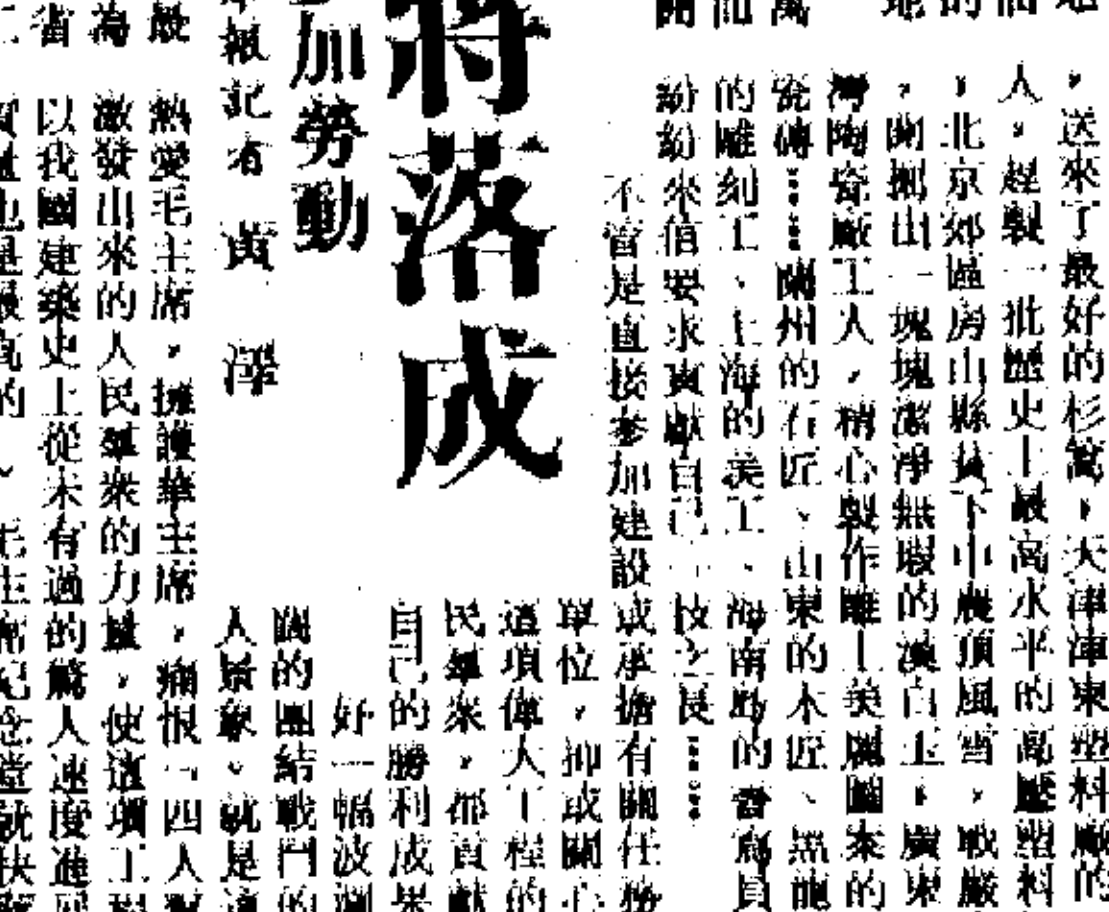 ，送來了最好的杉篙，天津津東塑料廠的
人，趕製一批歷史上最高水平的高壓塑料
的
，北京郊區房山縣貧下中農頂風雪，戰嚴
地
，開掘出一塊塊潔淨無瑕的漢白玉，廣東
灣陶瓷廠工人，精心製作雕上美麗圖案的
萬
瓷磚……蘭州的石匠、山東的木匠、黑龍
而
的雕刻工、上海的美工、海南島的
開
紛紛來信要求貢獻自己一技之長……
不管是直接參加建設或承擔有關任務
單位，抑或關心
這項偉大工程的
民羣衆，都貢獻
自己的勝利成果
好一幅波瀾
闊的團結戰鬥的
人景象。就是這
將落成
參加勞動
本報記者　黃　澤
最
熱愛毛主席，擁護華主席，痛恨「四人幫
為
激發出來的人民羣衆的力量，使這項工程
省
以我國建築史上從未有過的驚人速度進展
質量也是最高的。毛主席紀念堂就快